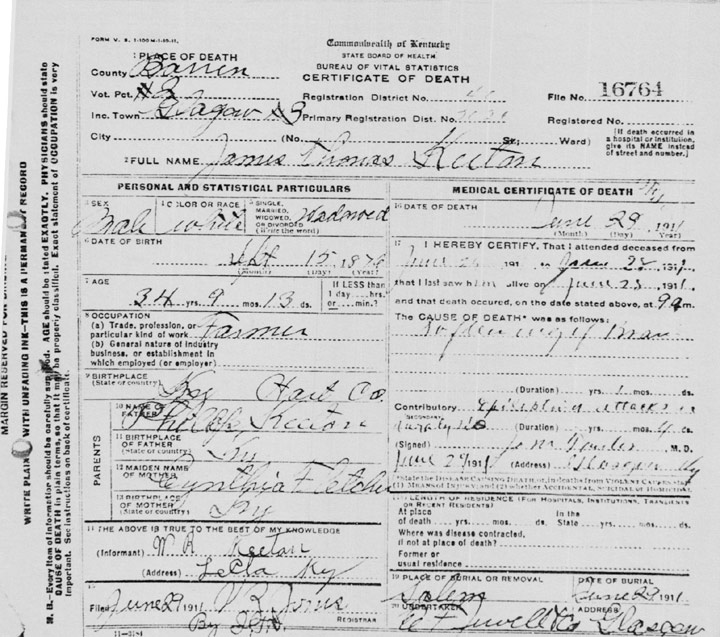 FORM V. S. 1-100M-1-10-11.
Commonwealth of Kentucky
STATE BOARD OF HEALTH.
BUREAU OF VITAL STATISTICS
CERTIFICATE OF DEATH
1 PLACE OF DEATH
County Barren
Vot. Pct. #3
Inc. Town Glasgow
City
Registration District No.
Primary Registration Dist. No.
(No. St.; Ward)
File No. 16764
Registered No.
[If death occurred in a hospital or institution, give its NAME instead of street and number.]
2 FULL NAME James Thomas Keeton
PERSONAL AND STATISTICAL PARTICULARS
3 SEX Male
4 COLOR OR RACE white
5 SINGLE, MARRIED, WIDOWED, OR DIVORCED (Write the word) Widowed
6 DATE OF BIRTH
Sept 15 187
(Month) (Day) (Year)
7 AGE
34 yrs. 9 mos. 13 ds.
If LESS than 1 day... hrs. or... min.?
8 OCCUPATION
(a) Trade, profession, or particular kind of work Farmer
(b) General nature of industry
business, or establishment in
which employed (or employer)
9 BIRTHPLACE
(State or country) Ky Hart Co.
PARENTS
10 NAME OF FATHER Phillip Keeton
11 BIRTHPLACE OF FATHER (State or country) Ky
12 MAIDEN NAME OF MOTHER Cynthia Fletcher
13 BIRTHPLACE OF MOTHER (State or country) Ky
14 THE ABOVE IS TRUE TO THE BEST OF MY KNOWLEDGE
(Informant) W R Keeton
(Address) Ky
15
Filed June 29 1911
REGISTRAR
11-3184
MEDICAL CERTIFICATE OF DEATH
16 DATE OF DEATH
June 29, 1911
(Month) (Day) (Year)
17 I HEREBY CERTIFY, That I attended deceased from
June 191 to June 28, 1911,
that I last saw him alive on June 28, 1911,
and that death occured, on the date stated above, at 9 a m.
The CAUSE OF DEATH* was as follows:
Softening of Brain
(Duration) yrs. 1 mos. ds.
Contributory attacks
SECONDARY
(Duration) yrs. mos. ds.
(Signed) M. D.
June 29 1911 (Address) Glasgow Ky
*State the DISEASE CAUSING DEATH, or, in deaths from VIOLENT CAUSES, state (1) MEANS OF INJURY; and (2) whether ACCIDENTAL, SUICIDAL or HOMICIDAL.
18 LENGTH OF RESIDENCE (FOR HOSPITALS, INSTITUTIONS, TRANSIENTS OR RECENT RESIDENTS)
At place of death... yrs... mos... ds. In the State... yrs... mos... ds.
Where was disease contracted,
if not at place of death?
Former or
usual residence
19 PLACE OF BURIAL OR REMOVAL Salem
DATE OF BURIAL June 29 1911
20 UNDERTAKER
ADDRESS Glasgow
MARGIN RESERVED FOR BINDING
WRITE PLAINLY WITH UNFADING INK—THIS IS A PERMANENT RECORD
N. B.—Every item of information should be carefully supplied. AGE should be stated EXACTLY. PHYSICIANS should state
CAUSE OF DEATH in plain terms, so that it may be properly classified. Exact statement of OCCUPATION is very
important. See instructions on back of certificate.